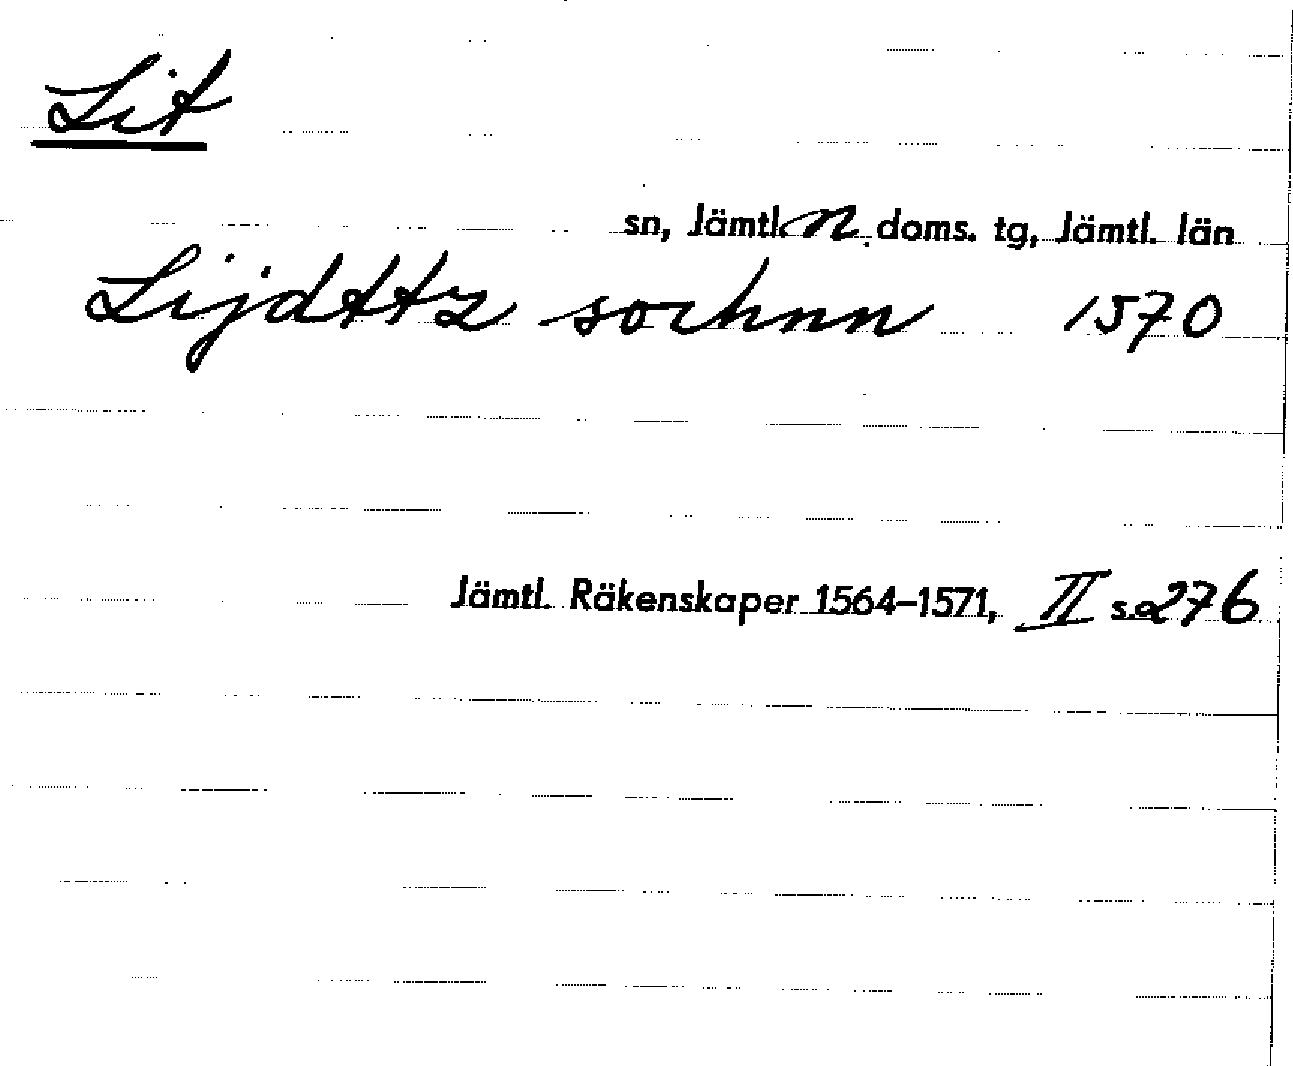 Lit
sn, Jämtl. n. doms. tg, Jämtl. län
Lijdttz sochnn 1570
Jämtl. Räkenskaper 1564–1571, II s. 276